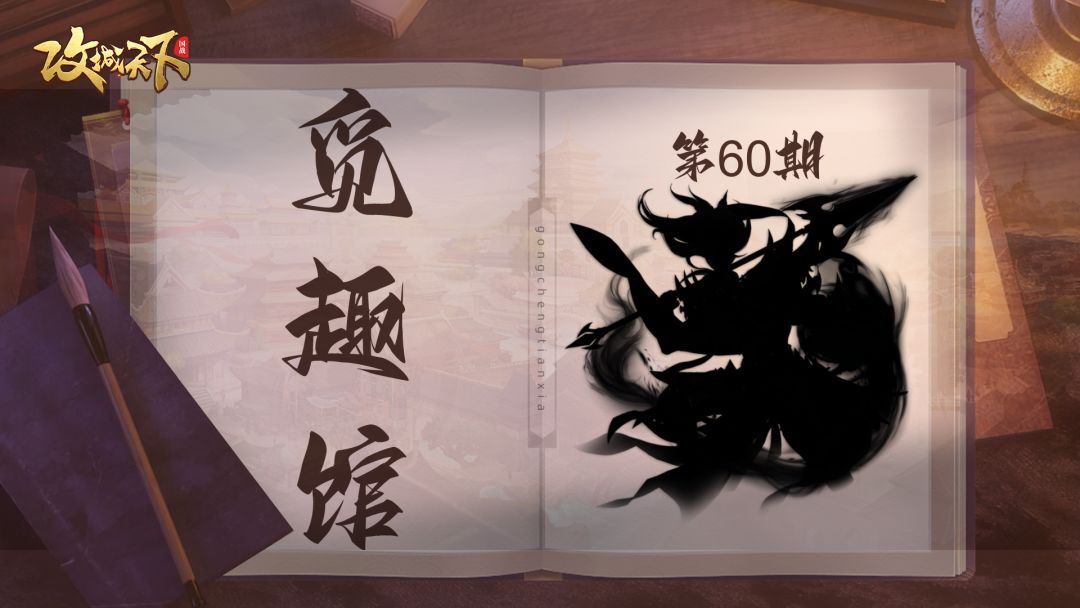 攻城天下
国战
觅趣馆
gongchengtianxia
第60期